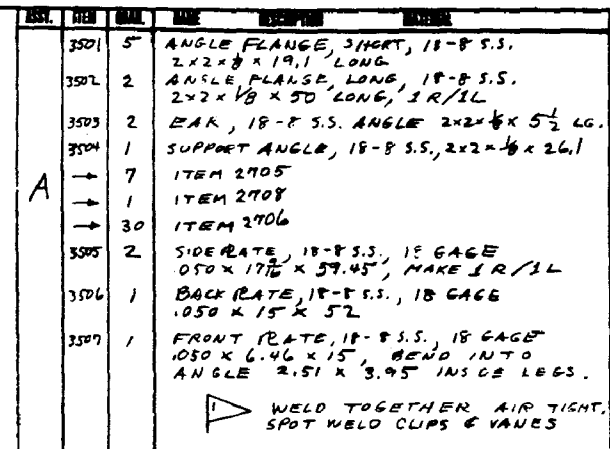 ASST. ITEM QUAN. NAME DESCRIPTION MATERIAL
3501 5 ANGLE FLANGE, SHORT, 18-8 S.S.
2 x 2 x 1/8 x 19.1 LONG
3502 2 ANGLE FLANGE, LONG, 18-8 S.S.
2x2 x 1/8 x 50 LONG, 1 R/1L
3503 2 EAR, 18-8 S.S. ANGLE 2x2x 1/8 x 5 1/2 LG.
3504 1 SUPPORT ANGLE, 18-8 S.S., 2x2 x 1/8 x 26.1
A → 7 ITEM 2705
→ 1 ITEM 2708
→ 30 ITEM 2706
3505 2 SIDE PLATE, 18-8 S.S., 18 GAGE
.050 x 17 9/16 x 59.45, MAKE 1 R/1L
3506 1 BACK PLATE, 18-8 S.S., 18 GAGE
.050 x 15 x 52
3507 1 FRONT PLATE, 18-8 S.S., 18 GAGE
.050 x 6.46 x 15, BEND INTO
ANGLE 2.51 x 3.95 INSIDE LEGS.
1 WELD TOGETHER AIR TIGHT.
SPOT WELD CLIPS & VANES